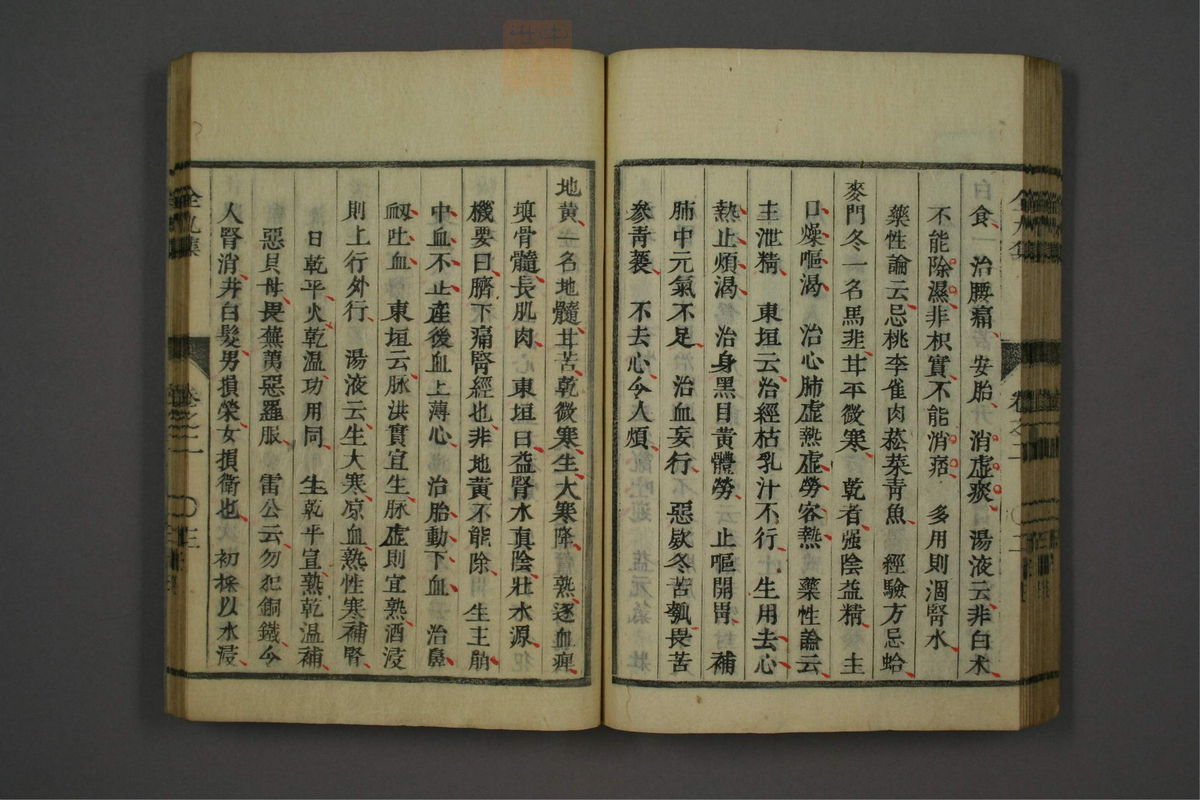 白食 治腰痛 安胎 消虚痰 湯液云非白术
不能除濕非枳實不能消痞 多用則涸腎水
藥性論云忌桃李雀肉菘菜青魚 經驗方忌蛤
麥門冬一名馬韭甘平微寒 乾者强陰益精 主
口燥嘔渴 治心肺虚熱虚勞客熱 藥性論云
主泄精 東垣云治經枯乳汁不行 生用去心
熱止煩渴 治身黑目黃體勞 止嘔開胃 補
肺中元氣不足 治血妄行 惡欵冬苦瓠畏苦
參青蘘 不去心令人煩
地黄 一名地髓甘苦乾微寒生大寒降 熟逐血痺
塡骨髓長肌肉 東垣曰益腎水真陰壯水源
機要曰臍下痛腎經也非地黄不能除 生主
中血不止產後血上薄心 治胎動下血 治鼻
衂吐血 東垣云脉洪實宜生脉虚則宜熟酒浸
則上行外行 湯液云生大寒凉血熟性寒補腎
日乾平火乾温功用同 生乾平宣熟乾温補
惡貝母畏蕪荑惡羅服 雷公云勿犯銅鐵令
人腎消并白髮男損榮女損衛也 初採以水浸
全九集 卷之二 三